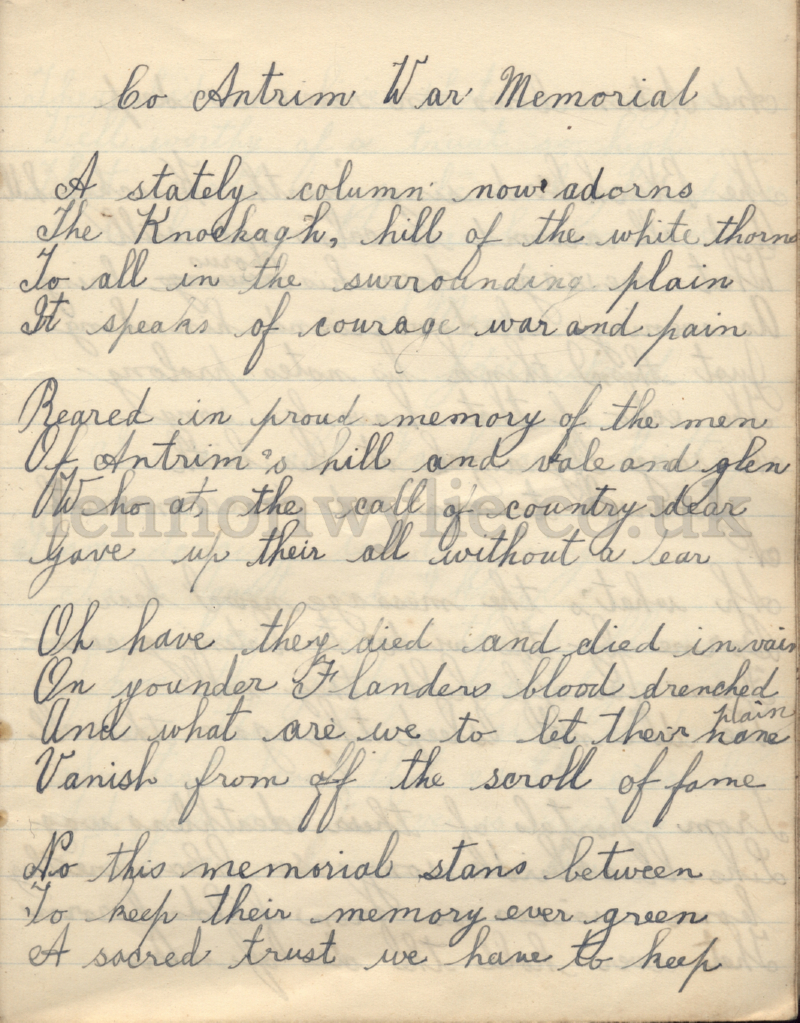 Co Antrim War Memorial
A stately column now adorns
The Knockagh, hill of the white thorns
To all in the surrounding plain
It speaks of courage war and pain
Reared in proud memory of the men
Of Antrim's hill and vale and glen
Who at the call of country dear
Gave up their all without a ear
Oh have they died and died in vain
On younder Flanders blood drenched
plain
And what are we to let their name
Vanish from off the scroll of fame
No this memorial stans between
To keep their memory ever green
A sacred trust we have to keep
lennonwylie.co.uk